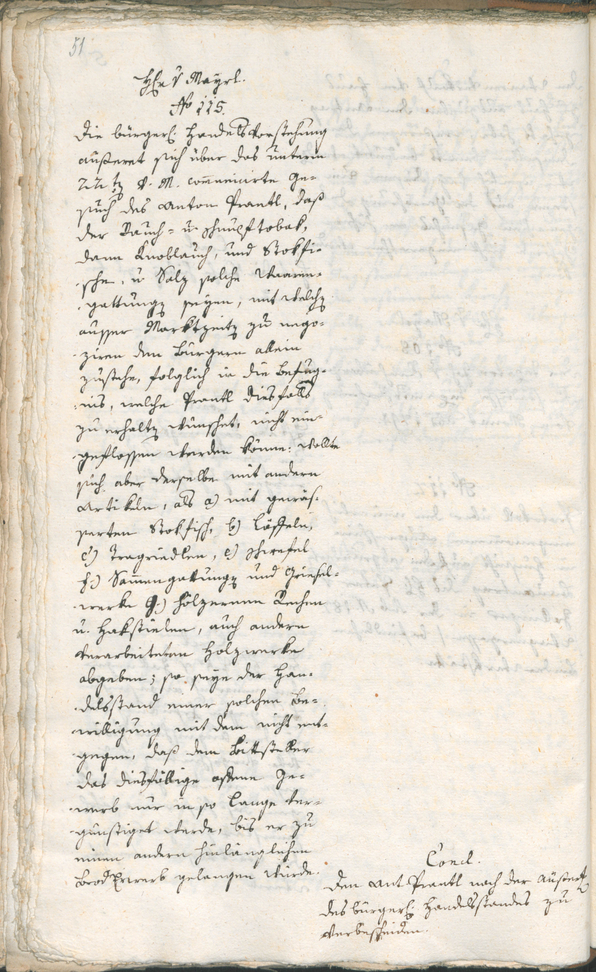 51
H: v Mayrl.
No 115.
Die bürgerl: Handelsvorstehung
äußeret sich über das unterm
22t h: M. com̄unicirte Ge-
such des Anton Prantl, daß
der Rauch- u: Schnupftobak,
dann Knoblauch, und Stokfi-
sche, u Salz solche Waaren-
gattungen seyen, mit welchen
ausser Marktzeiten zu nego-
ziren den Bürgern allein
zustehe, folglich in die Befug-
nis, welche Prantl diesfalls
zu erhalten wünschet, nicht ein-
geflossen werden könne: wollte
sich aber derselbe mit andern
Artikeln, als a) mit gewäs-
serten Stokfisch, b) Löffeln,
c) Tragriedlen, e) Schwefel
f) Samengattungen und Griesel-
werke g) hölzernen Rechen
u: Hakstielen, auch andern
verarbeiteten Holzwerke
abgeben; so seye der Han-
delsstand einer solchen Be-
willigung mit dem nicht ent-
gegen, daß dem Bittsteller
das diesfällige offene Ge-
werb nur in so lange ver-
günstiget werde, bis er zu
einen andern hinlänglichen
Brod Erwerb gelangen würde.
Concl.
Dem Ant. Prantl nach der Äußerung
des bürgerl: Handelsstandes zu
verbescheiden.